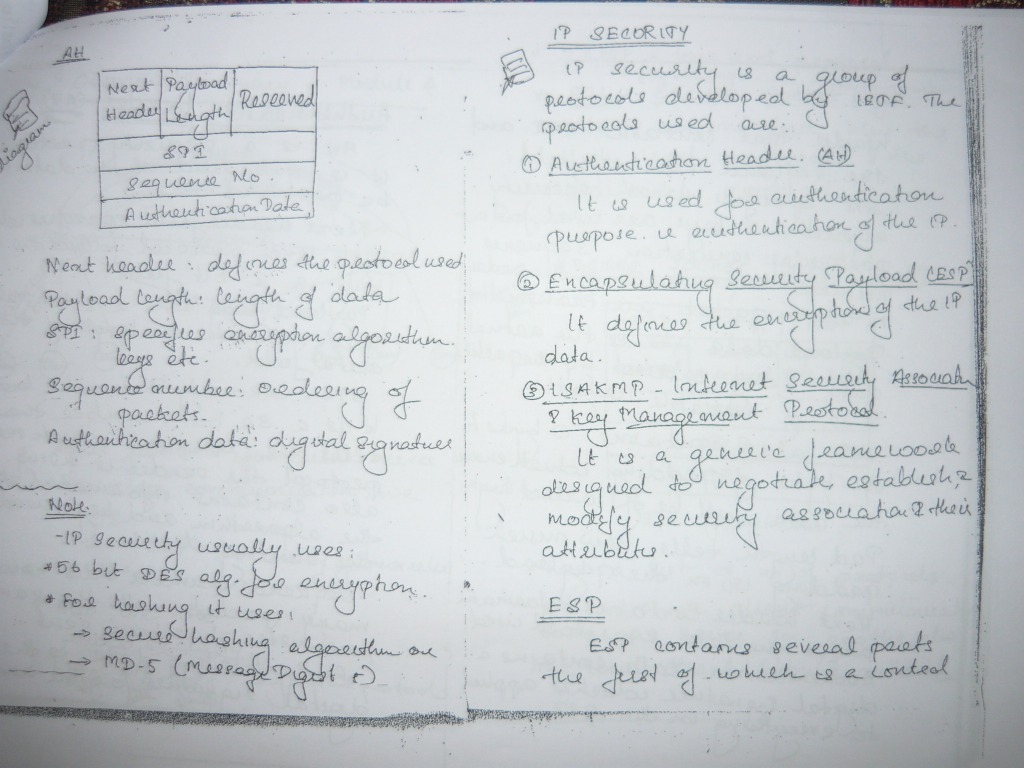 AH
Next Header
Payload Length
Reserved
SPI
Sequence No.
Authentication Data
diagram
Next header: defines the protocol used
Payload length: length of data
SPI: specifies encryption algorithm.
keys etc.
Sequence number: Ordering of
packets.
Authentication data: digital signature
Note.
-IP security usually uses:
*56 bit DES alg. for encryption.
* For hashing it uses:
→ secure hashing algorithm or
→ MD-5 (Message Digest
IP SECURITY
IP security is a group of
protocols developed by IETF. The
protocols used are:
① Authentication Header. (AH)
It is used for authentication
purpose. ie authentication of the IP.
② Encapsulating Security Payload (ESP)
It defines the encryption of the IP
data.
③ ISAKMP - Internet Security Association
& Key Management Protocol.
It is a generic framework
designed to negotiate, establish, &
modify security association & their
attributes.
ESP
ESP contains several parts
the first of which is a control